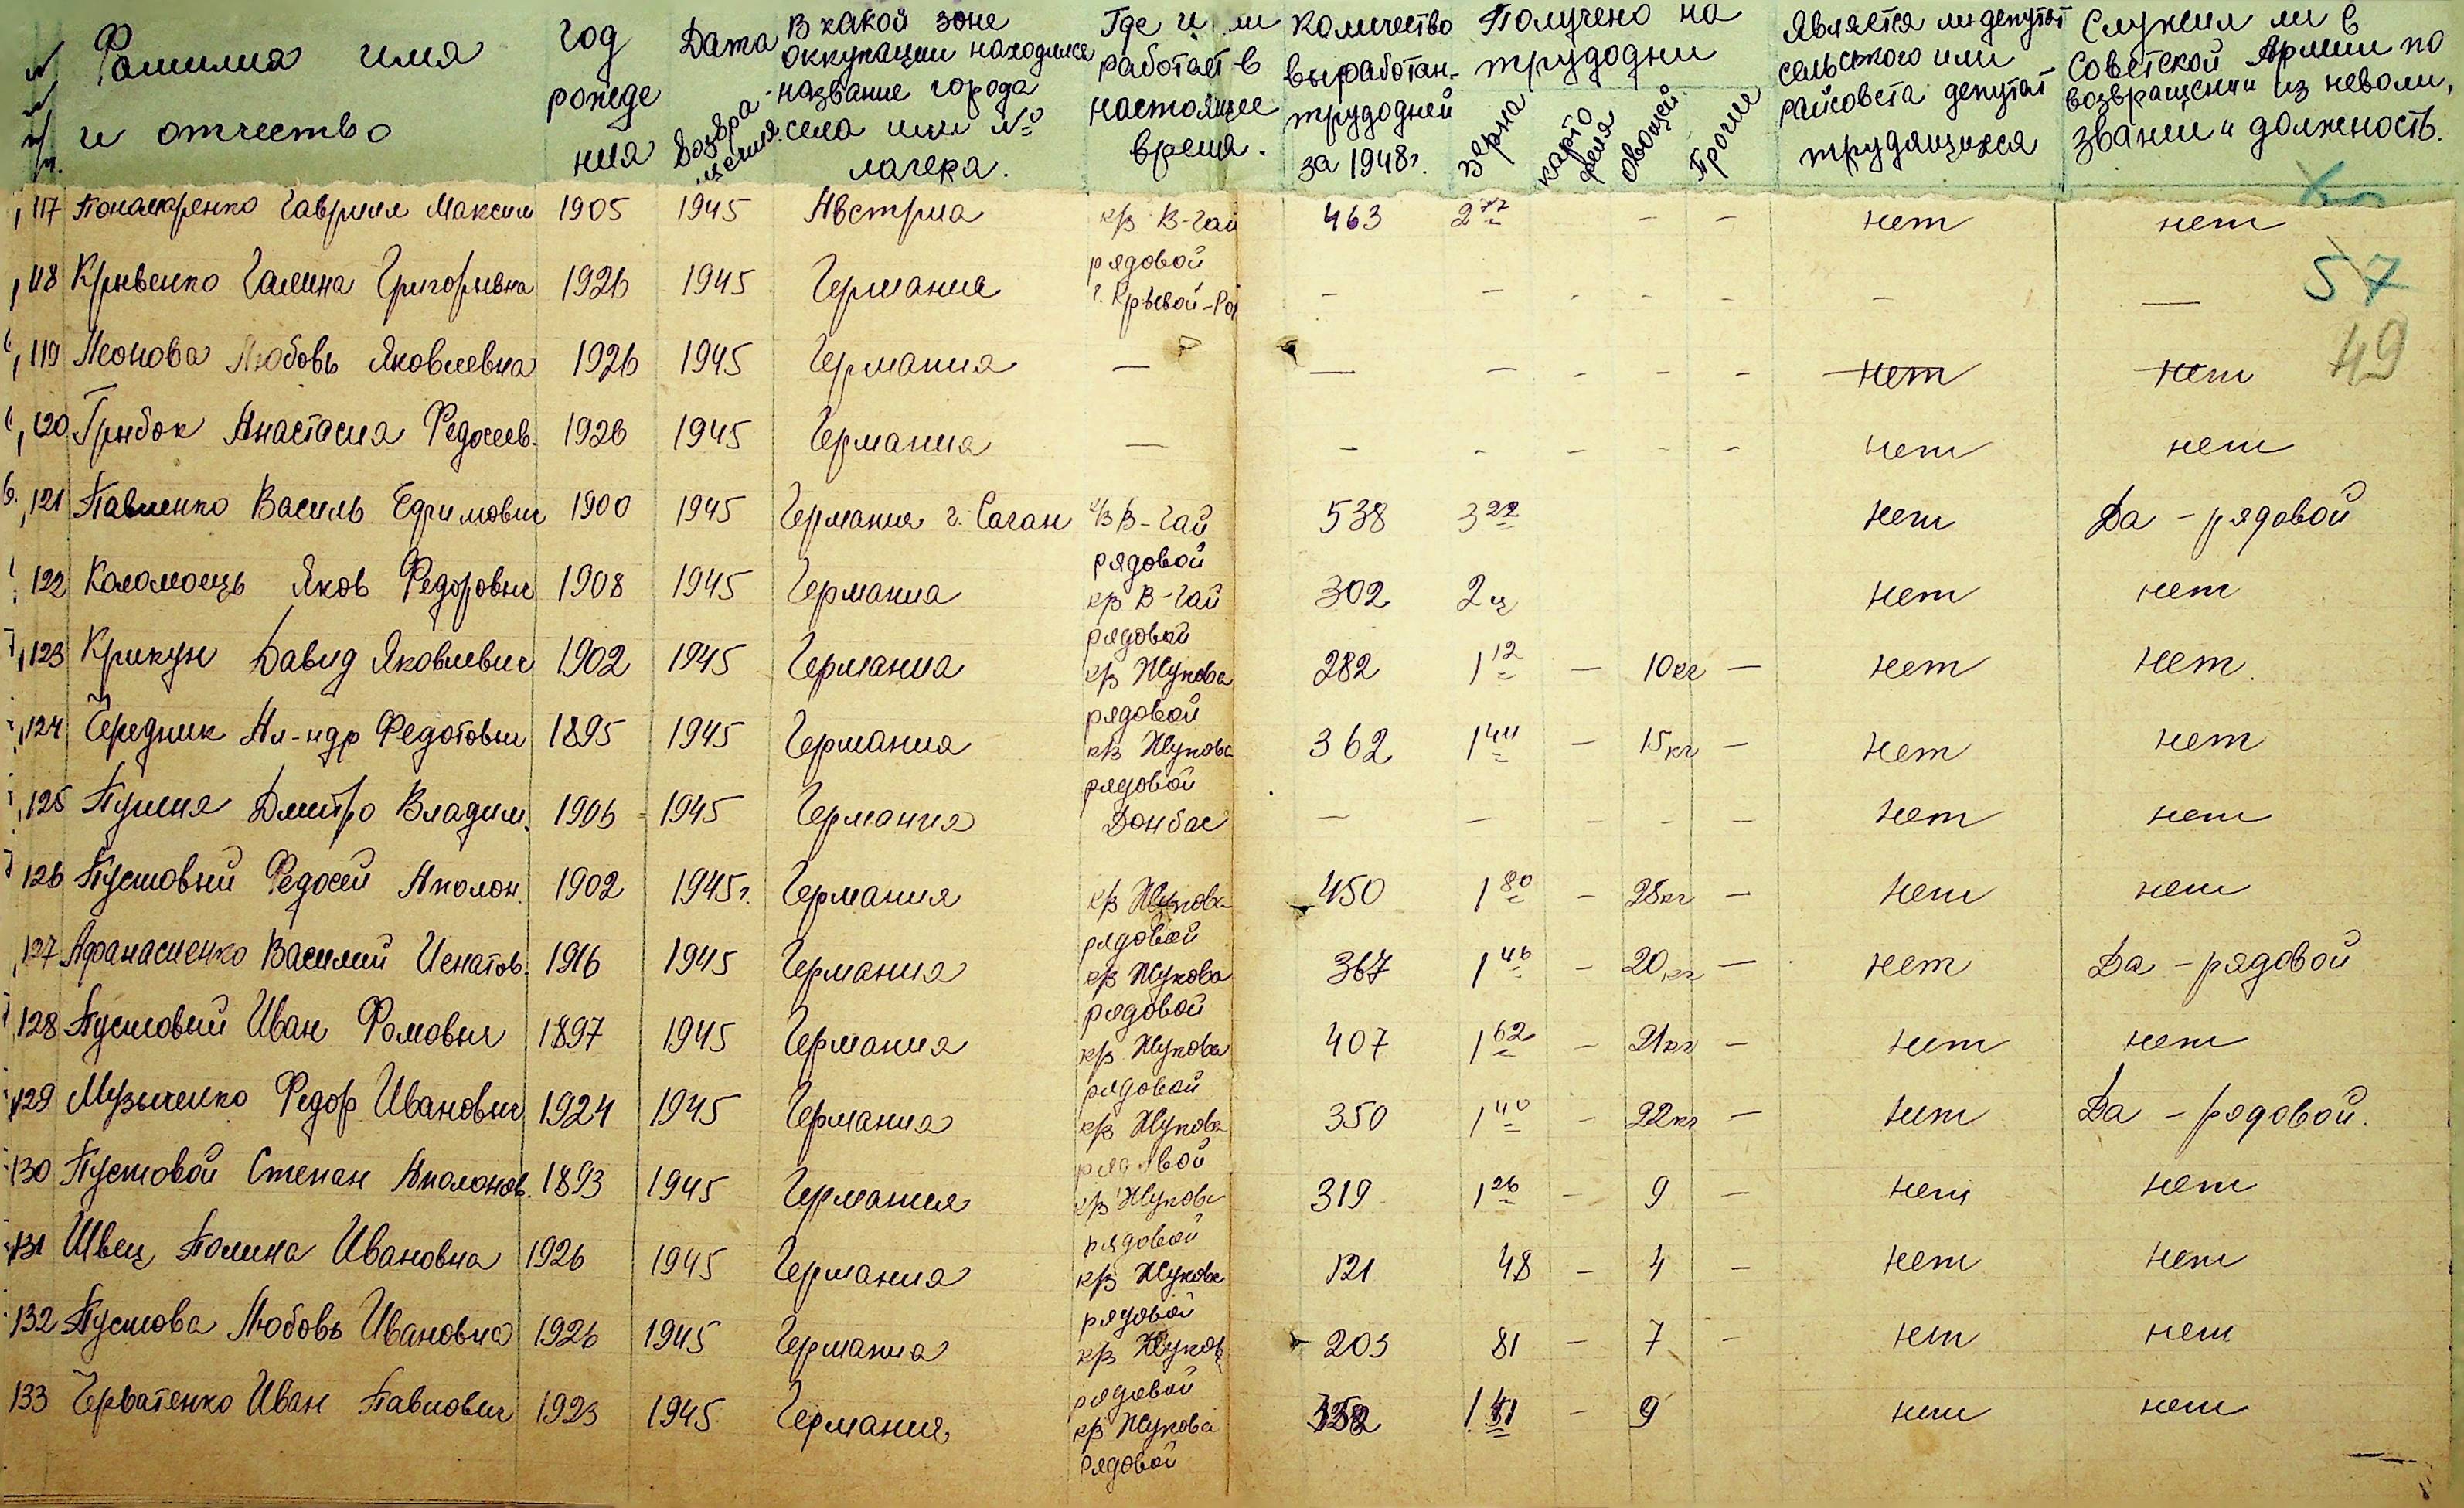 № Фамилия имя и отчество
Год рождения
Дата возвращения.
В какой зоне оккупации находился название города села или № лагеря.
Где и работает в настоящее время.
Количество выработан. трудодней за 1948г.
Получено на трудодни
Зерна картофеля овощей Прочие
Является ли депутат сельского или райсовета депутат трудящихся
Служил ли в Советской Армии по возвращении из неволи, звание и должность.
117 Пономаренко Гавриил Максим 1905 1945 Австрия к/з В-Гай рядовой 463 2 77 - - нет нет
118 Кривенко Галина Григорьевна 1926 1945 Германия г. Кривой-Рог - - - - - - -
57
119 Леонова Любовь Яковлевна 1926 1945 Германия - - - - - - нет нет
49
120 Грибок Анастасия Федосеев. 1926 1945 Германия - - - - - - нет нет
121 Павленко Василь Ефимович 1900 1945 Германия г. Саган к/з В-Гай рядовой 538 3 22 нет Да - рядовой
122 Коломоець Яков Федорович 1908 1945 Германия к/з В-Гай рядовой 302 2ц нет нет
123 Крикун Давид Яковлевич 1902 1945 Германия к/з Жукова рядовой 282 1 12 - 10кг - нет нет.
124 Чередник Ал-ндр Федотович 1895 1945 Германия к/з Жукова рядовой 362 1 44 - 15кг - нет нет
125 Дмитро Владим. 1906 1945 Германия Донбас - - - - - нет нет
126 Пустовий Федосей Аполон. 1902 1945г. Германия к/з Жукова рядовой 450 1 80 - 28кг - нет нет
127 Афанасиенко Василий Игнатов. 1916 1945 Германия к/з Жукова рядовой 367 1 46 - 20кг - нет Да - рядовой
128 Пустовий Иван Фомович 1897 1945 Германия к/з Жукова рядовой 407 1 62 - 21кг - нет нет
129 Музыченко Федор Иванович 1924 1945 Германия к/з Жукова рядовой 350 1 40 - 22кг - нет Да - рядовой.
130 Пустовой Степан Аполонов. 1893 1945 Германия к/з Жукова рядовой 319 1 26 - 9 - нет нет
131 Швец Полина Ивановна 1926 1945 Германия к/з Жукова рядовой 121 48 - 4 - нет нет
132 Пустова Любовь Ивановна 1926 1945 Германия к/з Жукова рядовой 203 81 - 7 - нет нет
133 Черватенко Иван Павлович 1923 1945 Германия к/з Жукова рядовой - 9 нет нет